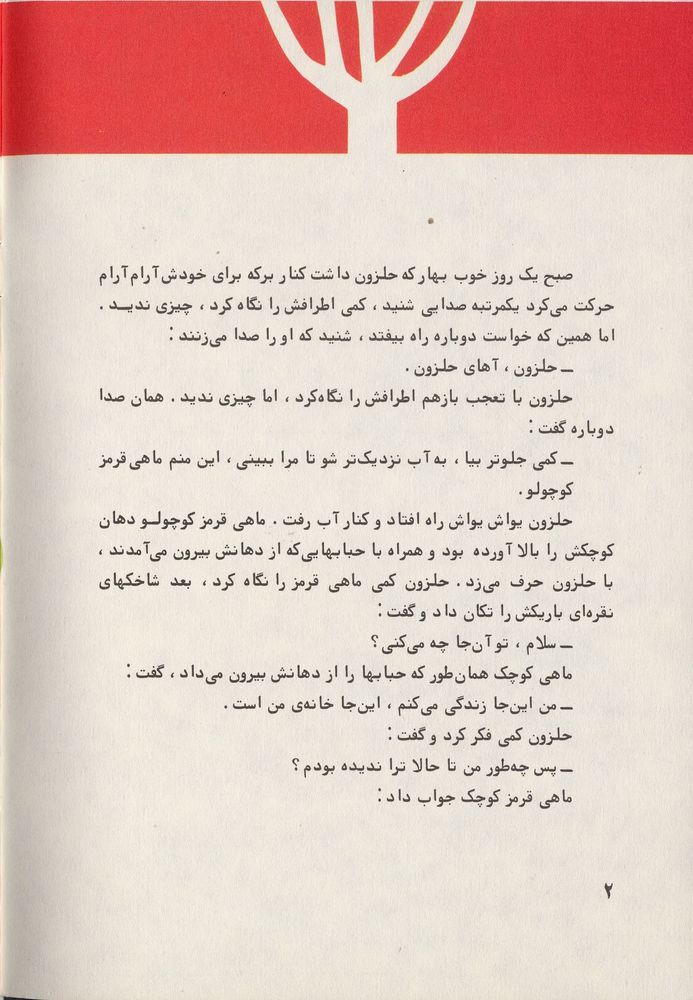 صبح یک روز خوب بهار که حلزون داشت کنار برکه برای خودش آرام آرام
حرکت می‌کرد یکمرتبه صدایی شنید ، کمی اطرافش را نگاه کرد ، چیزی ندیـد .
اما همین که خواست دوباره راه بیفتد ، شنید که او را صدا می‌زنند :
ــ حلزون ، آهای حلزون .
حلزون با تعجب بازهم اطرافش را نگاه‌کرد ، اما چیزی ندید . همان صدا
دوباره گفت :
ــ کمی جلوتر بیا ، به آب نزدیک‌تر شو تا مرا ببینی ، این منم ماهی قرمز
کوچولو .
حلزون یواش یواش راه افتاد و کنار آب رفت . ماهی قرمز کوچولـو دهان
کوچکش را بالا آورده بود و همراه با حبابهایی‌که از دهانش بیرون می‌آمدند ،
با حلزون حرف می‌زد . حلزون کمی ماهی قرمز را نگاه کرد ، بعد شاخکهای
نقره‌ای باریکش را تکان داد و گفت :
ــ سلام ، تو آن‌جا چه می‌کنی ؟
ماهی کوچک همان‌طور که حبابها را از دهانش بیرون می‌داد ، گفت :
ــ من این‌جا زندگی می‌کنم ، این‌جا خانه‌ی من است .
حلزون کمی فکر کرد و گفت :
ــ پس چه‌طور من تا حالا ترا ندیده بودم ؟
ماهی قرمز کوچک جواب داد :
۲